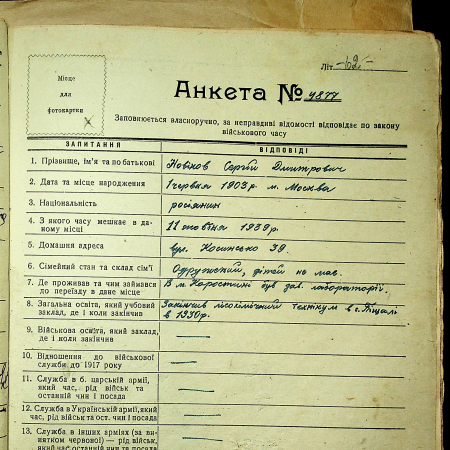 Літ. -62-
Місце
для
фотокартки
Анкета № 4877
Заповнюється власноручно, за неправдиві відомості відповідає по закону
військового часу
ЗАПИТАННЯ ВІДПОВІДІ
1. Прізвище, ім'я та по батькові Новіков Сергій Дмитрович
2. Дата та місце народження 1 червня 1903 р. м. Москва
3. Національність росіянин
4. З якого часу мешкає в да-
ному місці 11 жовтня 1939 р.
5. Домашня адреса вул. Косинсько 39
6. Сімейний стан та склад сім'ї Одружений, дітей не має.
7. Де проживав та чим займався
до переїзду в дане місце В м. Коростині був зав. лабораторії.
8. Загальна освіта, який учбовий
заклад, де і коли закінчив Закінчив лісохімічний технікум в с.
в 1930р.
9. Військова освіта, який заклад,
де і коли закінчив
10. Відношення до військової
служби до 1917 року
11. Служба в б. царській армії,
який час, рід військ та
останній чин і посада
12. Служба в Українській армії, який
час, рід військ та ост. чин і посада
13. Служба в інших арміях (за ви-
нятком червоної) — рід військ,
який час останній чин та посада